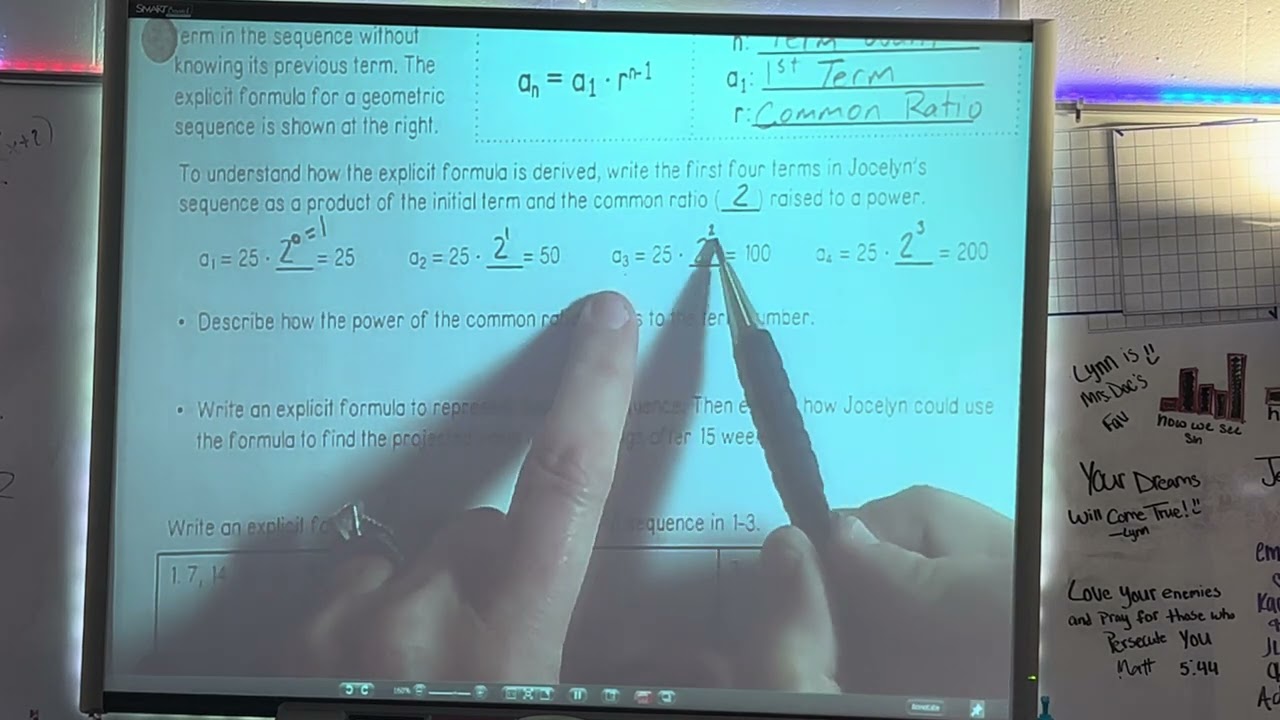 SMART
erm in the sequence without
knowing its previous term. The
explicit formula for a geometric
sequence is shown at the right.
aₙ = a₁ · rⁿ⁻¹
n: Term
a₁: 1st Term
r: Common Ratio
To understand how the explicit formula is derived, write the first four terms in Jocelyn's
sequence as a product of the initial term and the common ratio ( 2 ) raised to a power.
a₁ = 25 · 2⁰ = 25 =1
a₂ = 25 · 2¹ = 50
a₃ = 25 · 2² = 100
a₄ = 25 · 2³ = 200
• Describe how the power of the common to the number.
• Write an explicit formula to Then how Jocelyn could use
the formula to find the 15
Write an explicit sequence in 1-3.
1. 7, 14
160%
Annotate
Lynn is
Mrs Doc's
Fav
how we see
sin
Your Dreams
Will Come True!!
-Lynn
Love your enemies
and Pray for those who
Persecute You
Matt 5:44